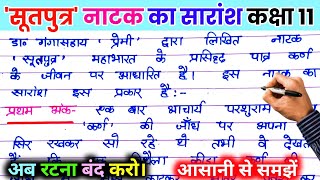 'सूतपुत्र' नाटक का सारांश कक्षा 11
डा० गंगासहाय 'प्रेमी' द्वारा लिखित नाटक
'सूतपुत्र' महाभारत के प्रसिद्ध पात्र कर्ण
के जीवन पर आधारित है। इस का
सारांश इस प्रकार है:-
प्रथम अंक- एक बार आचार्य परशुराम
'कर्ण' की जाँघ पर अपना
सिर रखकर सो रहे थे तभी वे देखते
अब रटना बंद करो।
आसानी से समझें